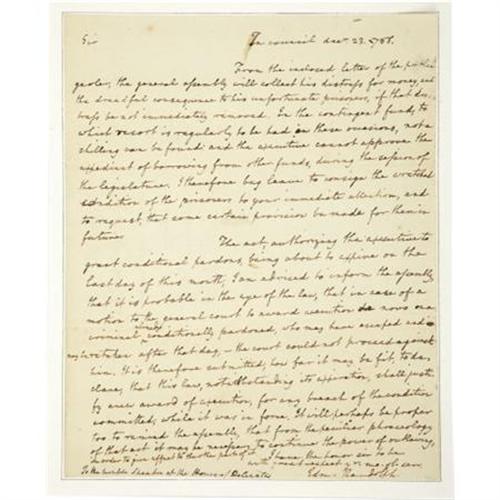 Sir In council decr. 23. 1788.
From the inclosed letter of the public
gaoler, the general assembly will collect his distress for money, and
the dreadful consequence to his unfortunate prisoners, if that dis-
tress be not immediately removed. In the contingent fund, to
which resort is regularly to be had on these occasions, not a
shilling can be found: and the executive cannot approve the
expedient of borrowing from other funds, during the session of
the legislature. I therefore beg leave to consign the wretched
condition of the prisoners to your immediate attention, and
to request, that some certain provision be made for them in
future.
The act, authorizing the executive to
grant conditional pardons, being about to expire on the
last day of this month, I am advised to inform the assembly
that it is probable in the eye of the law, that in case of a
motion to the general court to award execution on a
criminal conditionally pardoned, who may have escaped and
may be retaken after that day, - the court could not proceed against
him. It is therefore submitted, how far it may be fit, to de-
clare, that this law, notwithstanding its expiration, shall
by award of execution, for any breach of the condition
committed, while it was in force. It will perhaps be proper
too to remind the assembly, that from the peculiar phraseology
of that act it may be necessary to continue the power of outlawry,
in order to give effect to the other parts of it. I have the honor sir to be
with great respect yr. mo. ob. serv.
To the honble Speaker of the House of Delegates Edm: Randolph